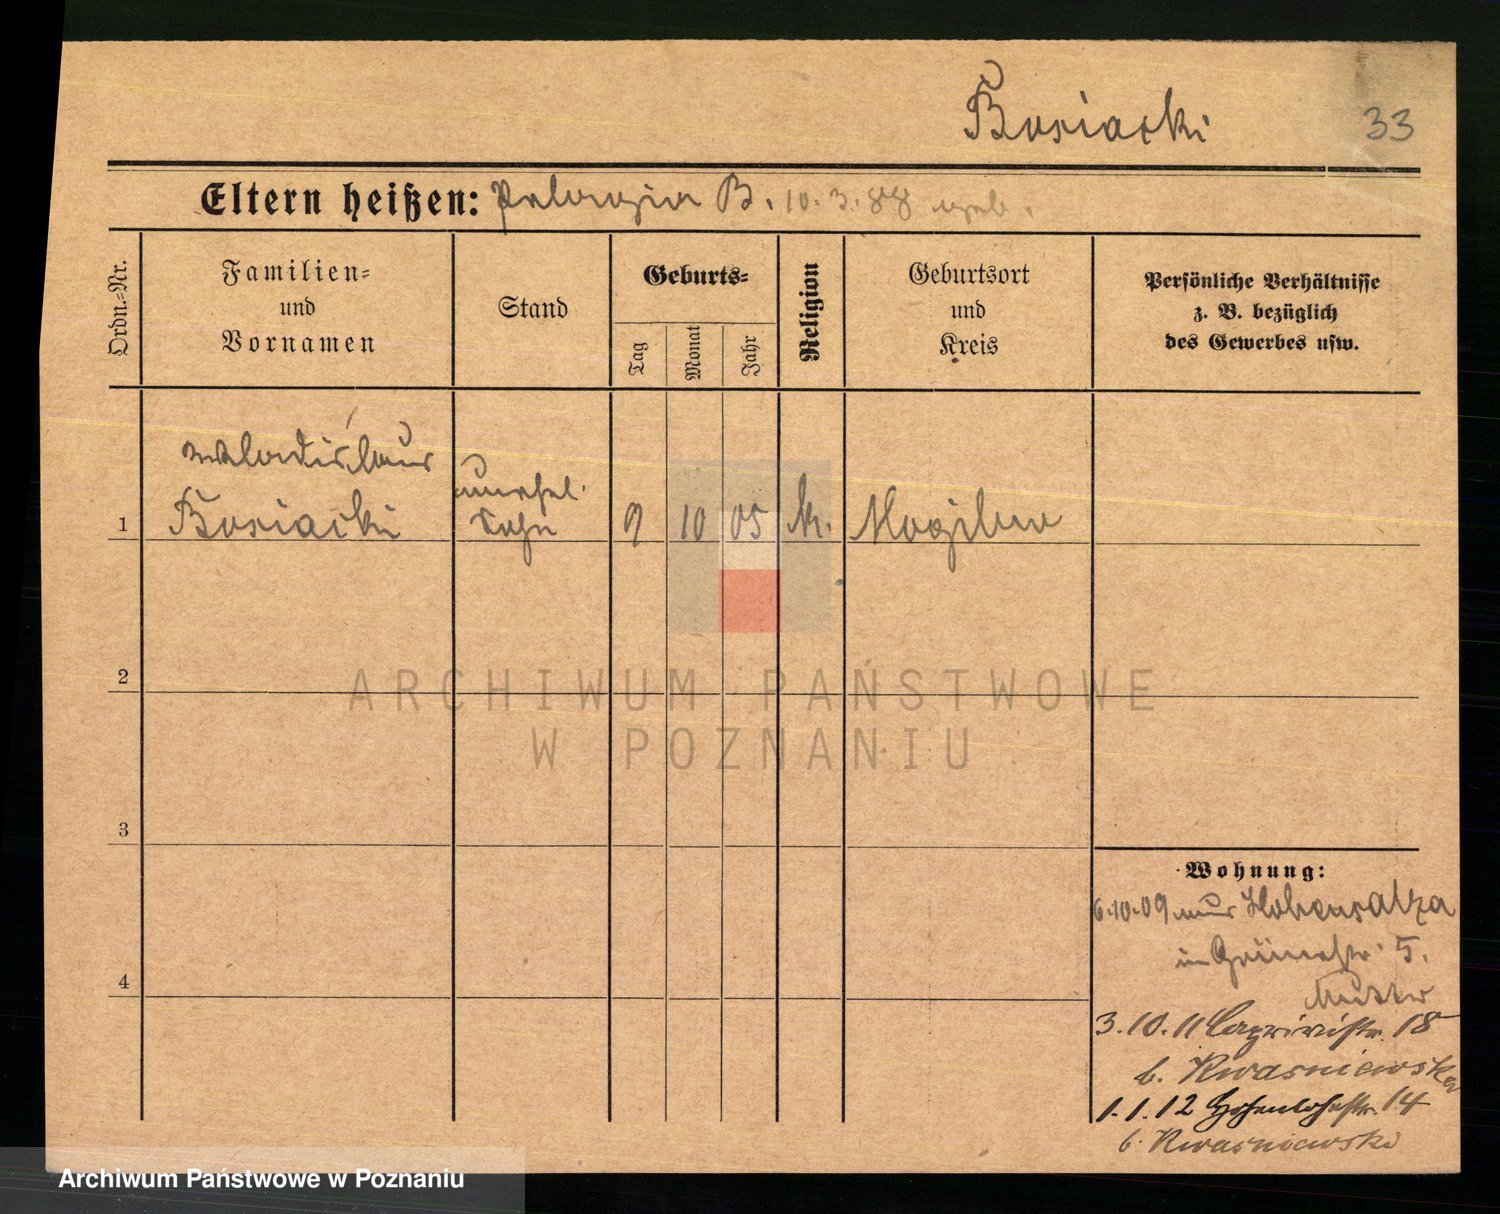 Bosiacki
33
Eltern heißen: Pelagia B. 10. 3. 88 geb.
Ordn.-Nr.
Familien- und Vornamen
Stand
Geburts-
Tag
Monat
Jahr
Religion
Geburtsort und Kreis
Persönliche Verhältnisse z. B. bezüglich des Gewerbes usw.
Wladislaus
1 Bosiacki
unehel. Sohn
9 10 05 k. Mogilno
2
3
4
Wohnung:
6.10.09 aus Hohensalza
in Grünestr. 5.
Mutter
3.10.11 18
b. Kwasniewska
1.1.12 Hohenlohestr. 14
b. Kwasniewski
ARCHIWUM PAŃSTWOWE
W POZNANIU
Archiwum Państwowe w Poznaniu